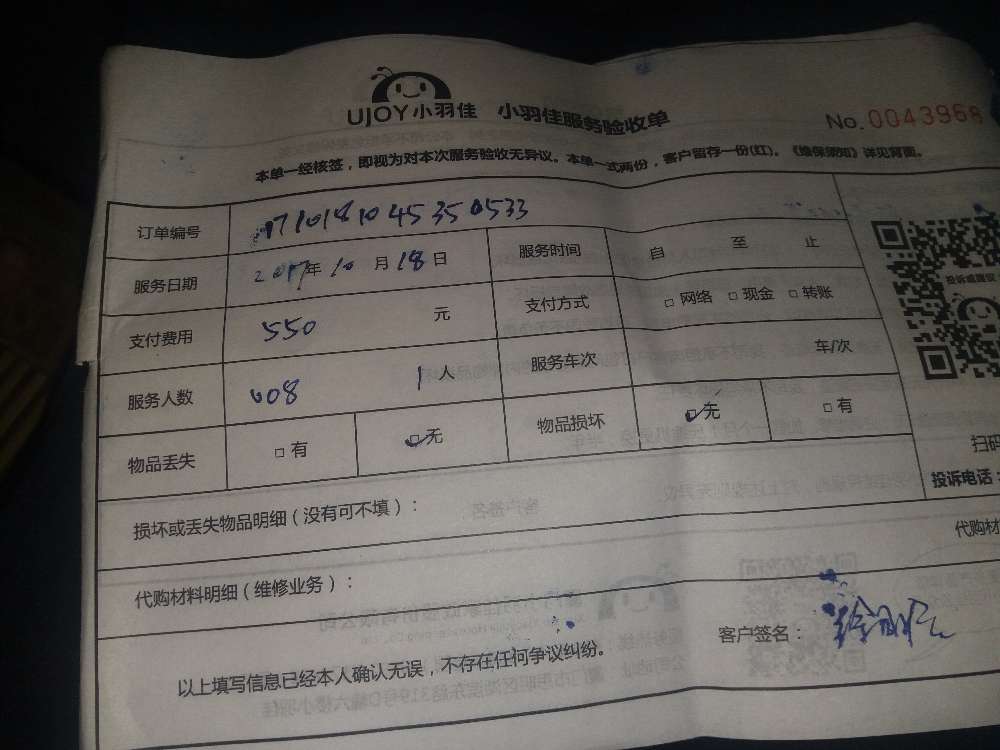 UJOY小羽佳 小羽佳服务验收单 No.0043968
本单一经核签，即视为对本次服务验收无异议。本单一式两份，客户留存一份(红)。《维保须知》详见背面。
订单编号 1710181045350533
服务日期 2017年10月18日 服务时间 自 至 止
支付费用 550 元 支付方式 □网络 □现金 □转账
服务人数 608 1人 服务车次 车/次
物品丢失 □有 □无 物品损坏 □无 □有
投诉或建议
扫码
投诉电话：
损坏或丢失物品明细（没有可不填）：
代购材
代购材料明细（维修业务）：
客户签名：
以上填写信息已经本人确认无误，不存在任何争议纠纷。